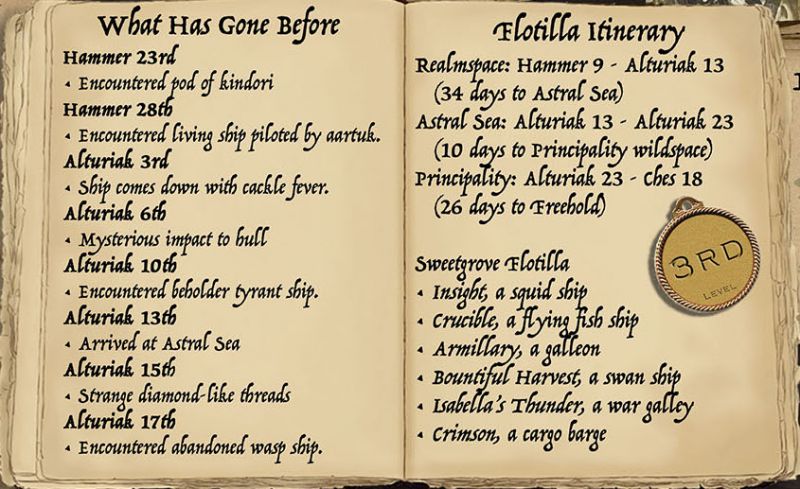 What Has Gone Before
Hammer 23rd
• Encountered pod of kindori
Hammer 28th
• Encountered living ship piloted by aartuk.
Alturiak 3rd
• Ship comes down with cackle fever.
Alturiak 6th
• Mysterious impact to hull
Alturiak 10th
• Encountered beholder tyrant ship.
Alturiak 13th
• Arrived at Astral Sea
Alturiak 15th
• Strange diamond-like threads
Alturiak 17th
• Encountered abandoned wasp ship.
Flotilla Itinerary
Realmspace: Hammer 9 - Alturiak 13
(34 days to Astral Sea)
Astral Sea: Alturiak 13 - Alturiak 23
(10 days to Principality wildspace)
Principality: Alturiak 23 - Ches 18
(26 days to Freehold)
Sweetgrove Flotilla
• Insight, a squid ship
• Crucible, a flying fish ship
• Armillary, a galleon
• Bountiful Harvest, a swan ship
• Isabella's Thunder, a war galley
• Crimson, a cargo barge
3RD
LEVEL